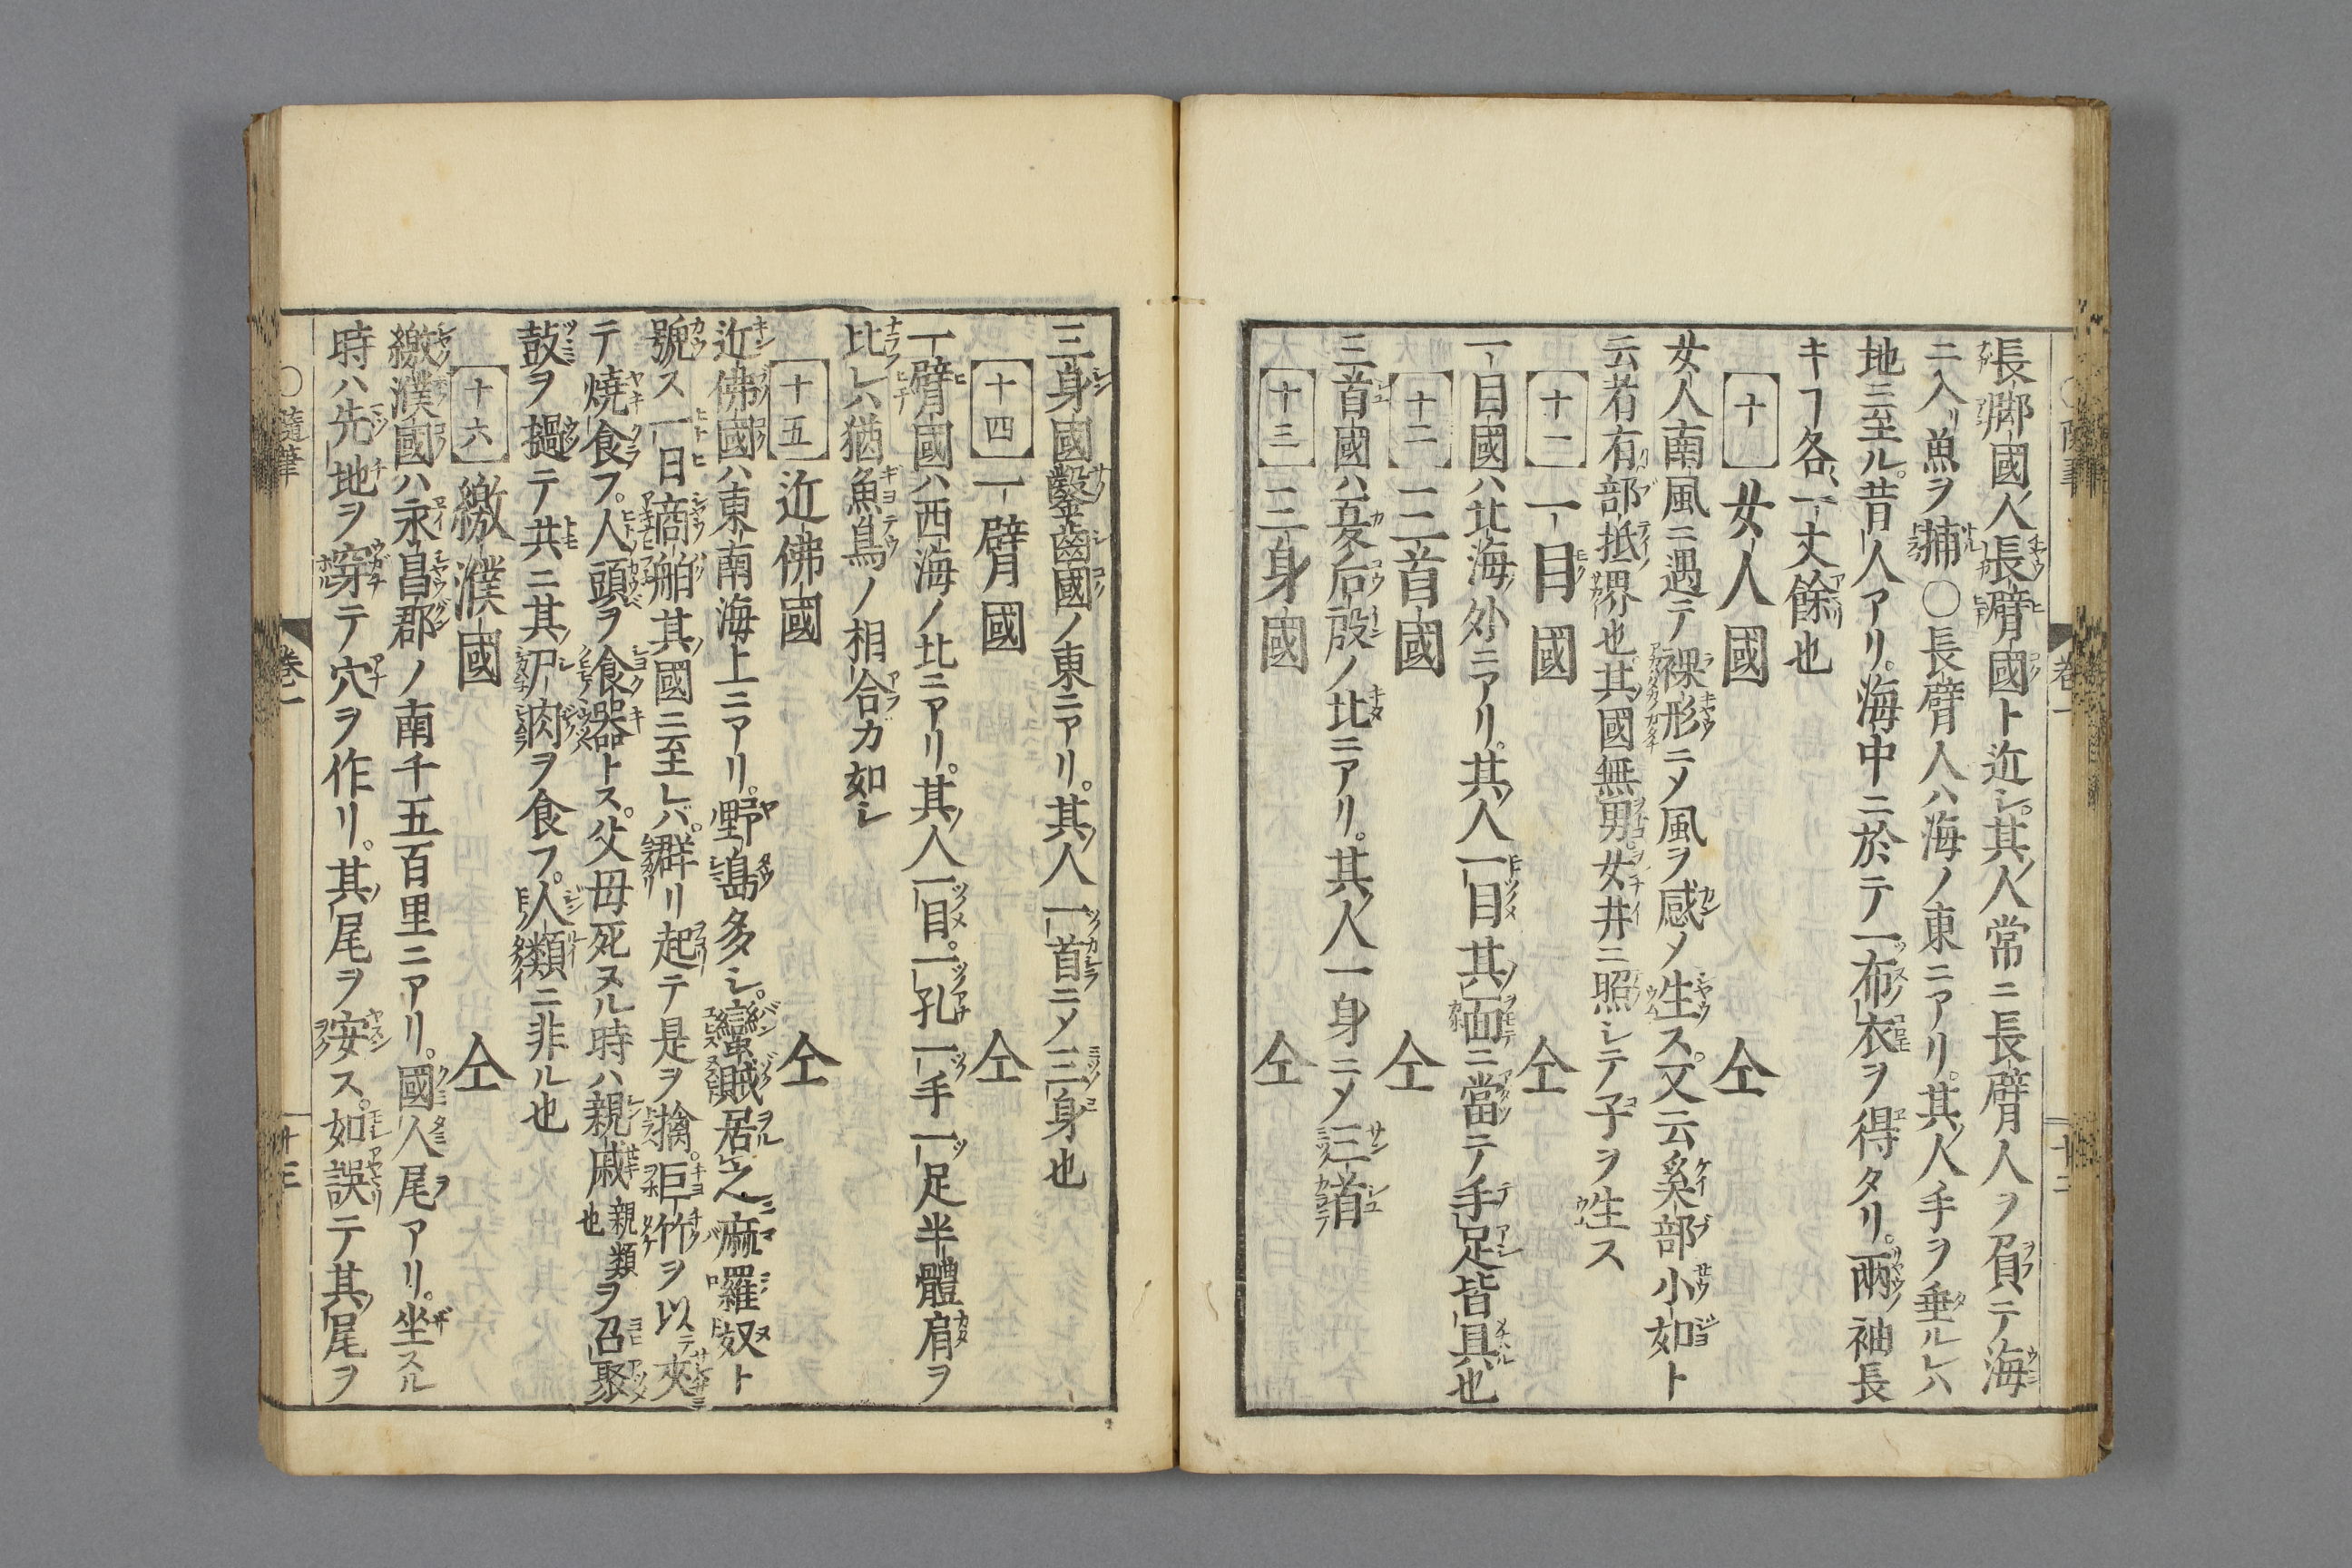 長脚國人長臂國ト近シ。其人常ニ長臂人ヲ負テ海
ニ入リ魚ヲ捕○長臂人ハ海ノ東ニアリ。其人手ヲ垂ルレハ
地ニ至ル。昔人アリ。海中ニ於テ一布衣ヲ得タリ。兩袖長
キヿ各一丈餘也
十 女人國 仝
女人南風ニ遇テ裸形ニメ風ヲ感メ生ス。又云奚部小如ト
云者有部抵堺也其國無男女井ニ照シテ子ヲ生ス
十一 一目國 仝
一目國ハ北海外ニアリ。其人一目其面ニ當テ手足皆具也
十二 三首國 仝
三首國ハ夏后殷ノ北ニアリ。其人一身ニメ三首
十三 三身國 仝
三身國鑿齒國ノ東ニアリ。其人一首ニメ三身也
十四 一臂國 仝
一臂國ハ西海ノ北ニアリ。其人一目。一孔一手一足半體肩ヲ
比レハ猶魚鳥ノ相合ガ如シ
十五 近佛國 仝
近佛國ハ東南海上ニアリ。野島多シ。蠻賊居之麻羅奴ト
號ス一日商舶其國ニ至レバ。群リ起テ是ヲ擒。巨竹ヲ以テ夾
テ燒食フ。人頭ヲ食器トス。父母死ヌル時ハ親戚親類也ヲ召聚
鼓ヲ撾テ共ニ其尸肉ヲ食フ。人類ニ非ル也
十六 繳濮國 仝
繳濮國ハ永昌郡ノ南千五百里ニアリ。國人尾アリ。坐スル
時ハ先地ヲ穿テ穴ヲ作リ。其尾ヲ安ス。如誤テ其尾ヲ
○隨筆 卷一 廿三